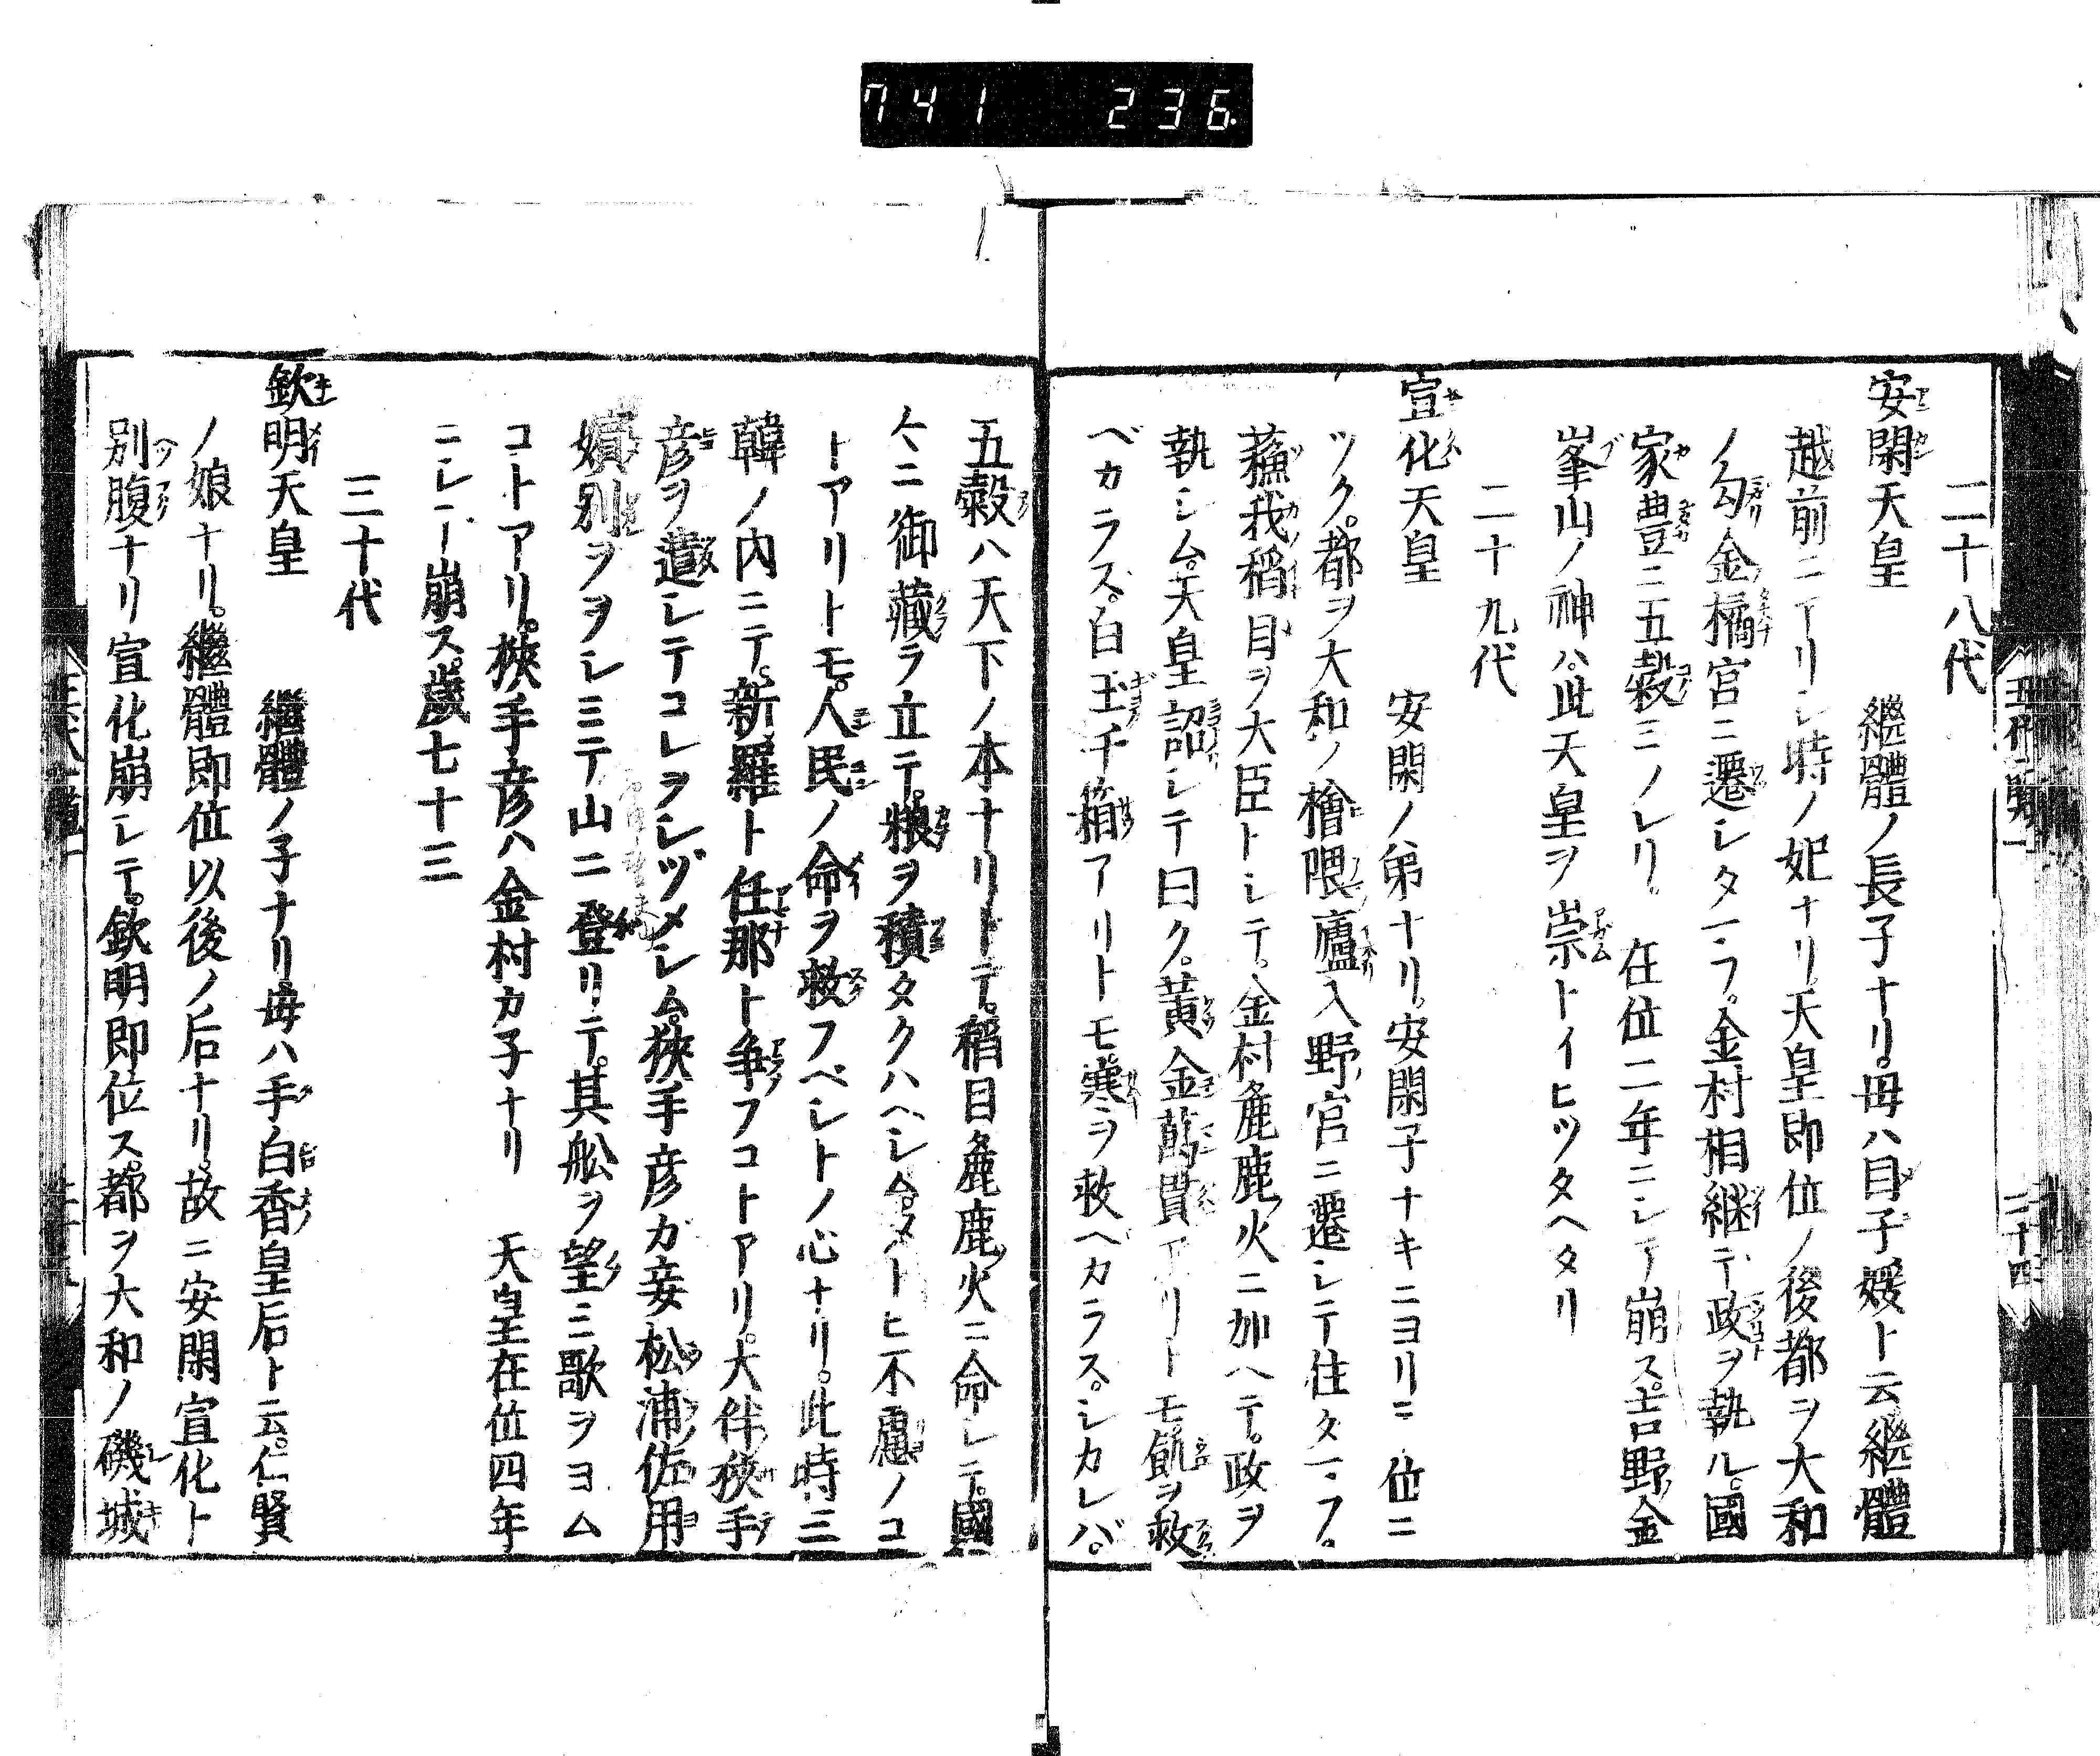 741 236
二十八代
安閑天皇 繼體ノ長子ナリ。母ハ目子媛ト云繼體
越前ニアリシ時ノ妃ナリ。天皇即位ノ後都ヲ大和
ノ勾金橘宮ニ遷シタマフ。金村相継テ政ヲ執ル。國
家豊ニ五穀ミノレリ。在位二年ニシテ崩ス。吉野金
峯山ノ神ハ。此天皇ヲ崇トイヒツタヘタリ
二十九代
宣化天皇 安閑ノ弟ナリ。安閑子ナキニヨリテ位ニ
ツク。都ヲ大和ノ檜隈廬入野宮ニ遷シテ住タマフ。
蘓我稲目ヲ大臣トシテ。金村麁鹿火ニ加ヘテ。政ヲ
執シム。天皇詔シテ曰ク。黃金萬貫アリトモ飢ヲ救
ベカラズ。白玉千箱アリトモ寒ヲ救ヘカラス。シカレバ。
五穀ハ天下ノ本ナリトテ。稲目麁鹿火ニ命シテ。國
〻ニ御藏ヲ立テ。粮ヲ積タクハヘシム。タトヒ不慮ノコ
トアリトモ。人民ノ命ヲ救フベシトノ心ナリ。此時三
韓ノ內ニテ。新羅ト任那ト争フコトアリ。大伴狹手
彦ヲ遣シテコレヲシヅメシム。狹手彦ガ妾松浦佐用
嬪別ヲヲシミテ山ニ登リテ。其舩ヲ望ミ歌ヲヨム
コトアリ。狹手彦ハ金村カ子ナリ 天皇在位四年
ニシテ崩ス。歲七十三
三十代
欽明天皇 繼體ノ子ナリ。母ハ手白香皇后ト云。仁賢
ノ娘ナリ。繼體即位以後ノ后ナリ。故ニ安閑宣化ト
別腹ナリ宣化崩シテ。欽明即位ス。都ヲ大和ノ磯城
王代一覽一
二十四